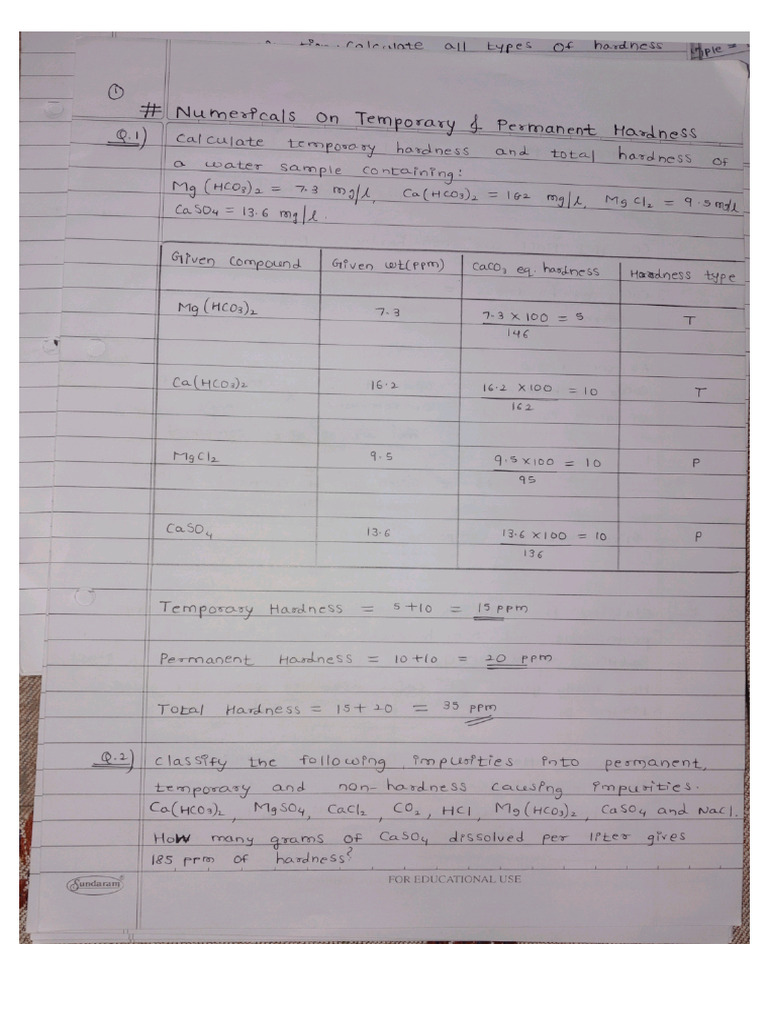 calculate all types of hardness
mple =
①
# Numericals on Temporary & Permanent Hardness
Q.1) Calculate temporary hardness and total hardness of
a water sample containing:
Mg(HCO3)2 = 7.3 mg/l, Ca(HCO3)2 = 162 mg/l, MgCl2 = 9.5 mg/l
CaSO4 = 13.6 mg/l.
Given Compound Given wt(ppm) CaCO3 eq. hardness Hardness type
Mg(HCO3)2 7.3 7.3 × 100 = 5 T
146
Ca(HCO3)2 16.2 16.2 × 100 = 10 T
162
MgCl2 9.5 9.5 × 100 = 10 P
95
CaSO4 13.6 13.6 × 100 = 10 P
136
Temporary Hardness = 5+10 = 15 ppm
Permanent Hardness = 10+10 = 20 ppm
Total Hardness = 15+20 = 35 ppm
Q.2) Classify the following impurities into permanent,
temporary and non-hardness causing impurities.
Ca(HCO3)2, MgSO4, CaCl2, CO2, HCl, Mg(HCO3)2, CaSO4 and NaCl.
How many grams of CaSO4 dissolved per liter gives
185 ppm of hardness?
Sundaram FOR EDUCATIONAL USE